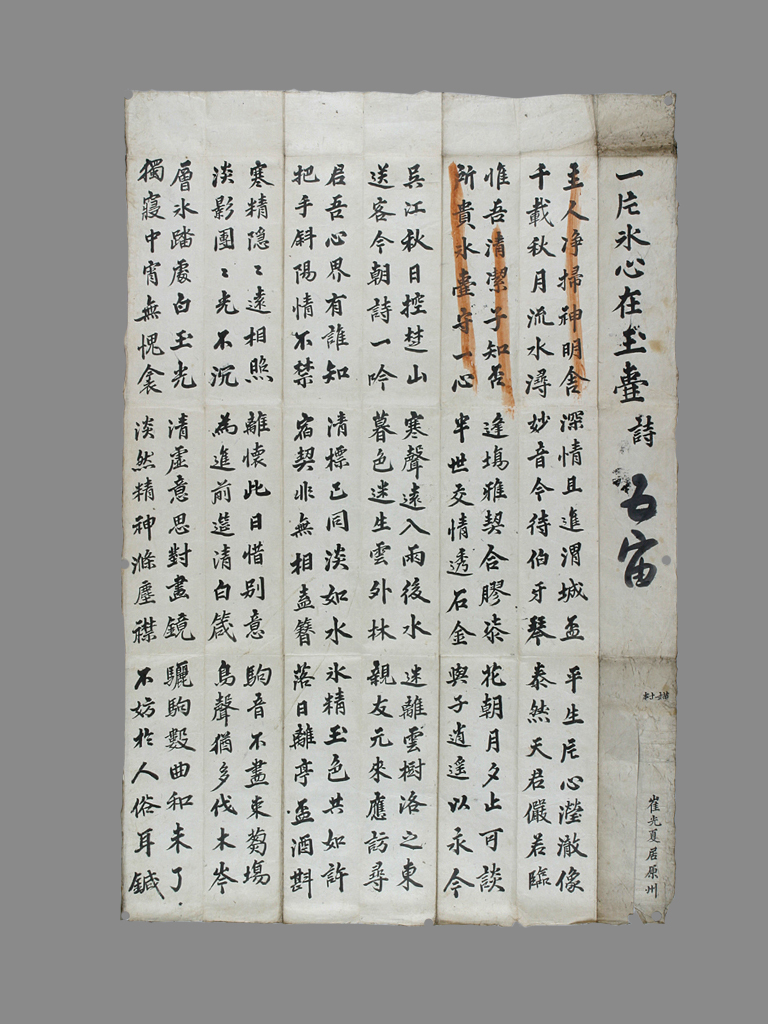 一片氷心在玉壺 詩 五宙
崔光夏居原州
主人净掃神明舍 深情且進渭城盃 平生片心瀅澈像
千載秋月流水潯 妙音今待伯牙琴 泰然天君儼若臨
惟吾清潔子知否 逢塲雅契合膠柒 花朝月夕止可談
所貴氷壺守一心 半世交情透石金 與子逍遙以永今
吳江秋日控楚山 寒聲遠入雨後水 迷離雲樹洛之東
送客今朝詩一吟 暮色迷生雲外林 親友元來應訪尋
君吾心界有誰知 清標已同淡如水 氷精玉色共如許
把手斜陽情不禁 宿契非無相盍簪 落日離亭盃酒斟
寒精隐〻遠相照 離懷此日惜別意 駒音不盡束蒭塲
淡影團〻光不沉 為進前筵清白箴 鳥聲猶多伐木岑
層氷踏處白玉光 清虛意思對畫鏡 驪駒數曲和未了
獨寢中宵無愧衾 淡然精神滌塵襟 不妨於人俗耳鍼